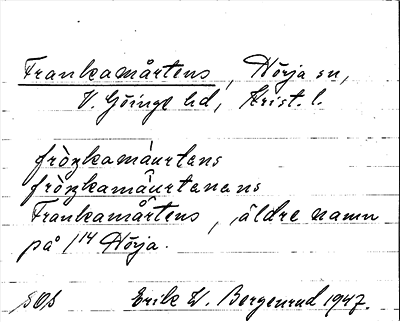 Frankamårtens, Nörja sn,
V. Göinge hd, Krist. l.
fròŋkamåurtens
fròŋkamåurtenans
Frankamårtens, äldre namn
på 1/14 Nörja.
SOS Erik W. Bergenrud 1947.